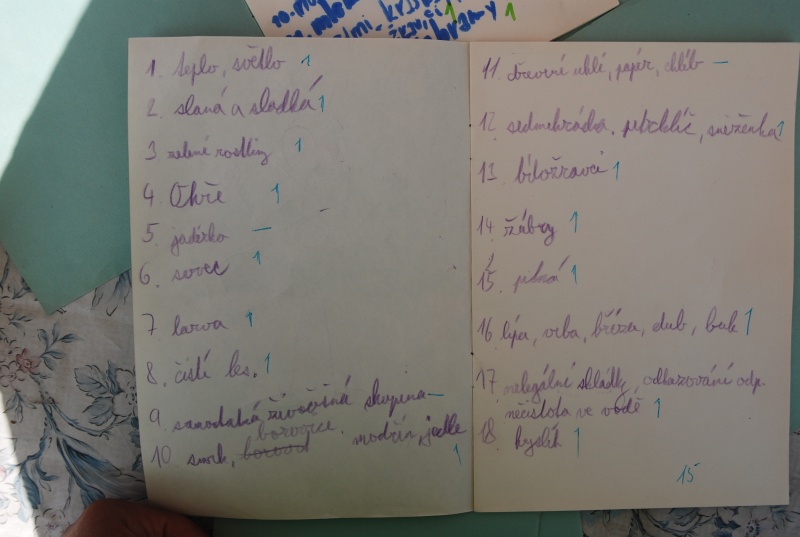 1
1. teplo, světlo 1
2. slaná a sladká 1
3 zelené rostliny 1
4. Ohře 1
5. jadérko –
6. savec 1
7 larva 1
8. čistí les. 1
9. samostatná živočišná skupina –
borovice.
10 smrk, modřín, jedle
1
11. dřevené uhlí, papír, chléb –
12. sedmikráska, petrklíč, sněženka 1
13. býložravci 1
14. žábry 1
15. plazá 1
16 lípa, vrba, bříza, dub, buk 1
17 nelegální skládky, odhazování odp.
nečistota ve vodě 1
18. kyslík 1
15